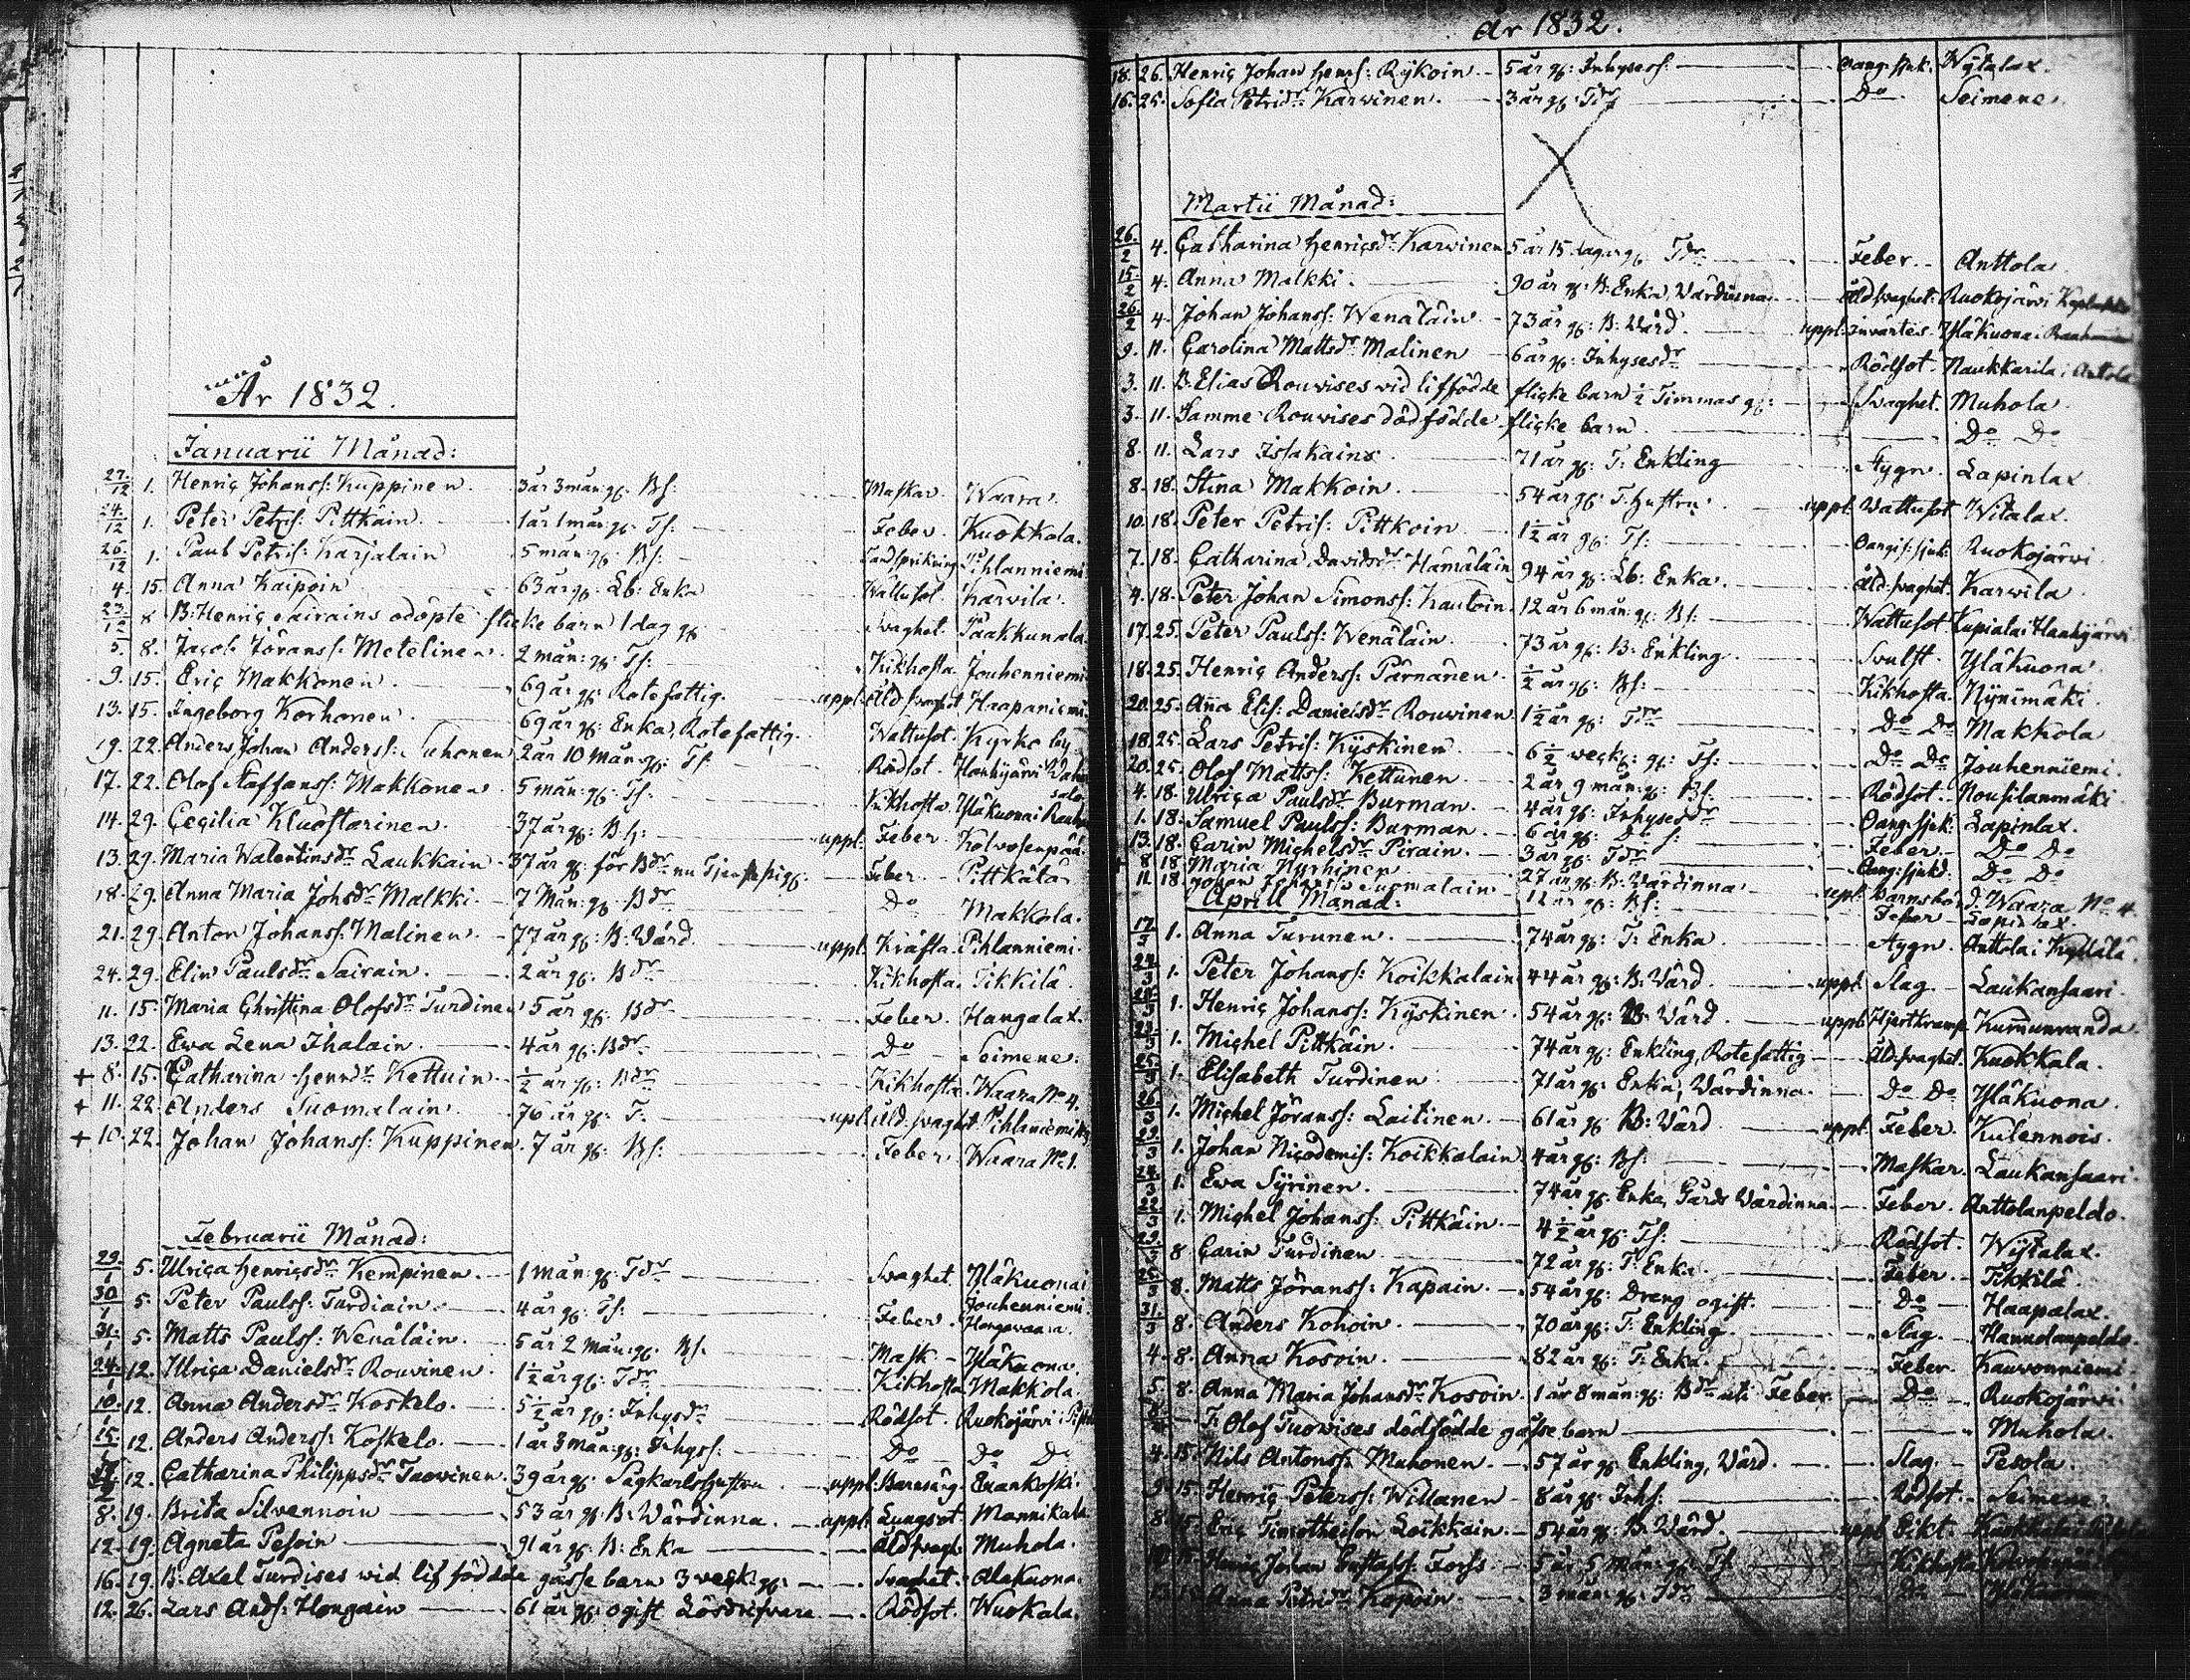 År 1832.
Januarii Månad:
27/12 1. Henriç Johanss: Kuppinen. 3 år 3 mån: g: Bs: Maskar. Waara.
24/12 1. Peter Petris: Pittkäin. 1 år 1 mån: g: Ts: Feber. Kuokkola.
26/12 1. Paul Petris: Karjalain 5 mån: g: Bs: Pihlanniemi
4. 15. Anna Kaipoin 63 år g: Lb: Enka Wattusot Karvila.
23/12 8 B: Henriç Sairains odöpte flicke barn 1 dag g: Svaghet. Paakkunala
5. 8. Jacob Jöranss: Metelinen. 2 mån: g: Ts: Kikhosta. Jouhenniemi
9. 15. Eriç Makkonen. 69 år g: Rotefattig. uppl: Åld. svaghet Haapaniemi
13. 15. Ingeborg Korhonen. 69 år g: Enka, Rotefattig. Wattusot. Kyrko by
19. 22. Anders Johan Anderss: Suhonen 2 år 10 mån: g: Ts: Rödsot. Hankijärvi
17. 22. Olof Staffanss: Makkonen. 5 mån: g: Ts: Kikhosta. Yläkuona i
14. 29. Çeçilia Kluostarinen. 37 år g: B. h: uppl: Feber. Kolvosenpää
13. 29. Maria Walentinsdr Laukkain 37 år g: för Bdr nu Tjenste pig: Feber Pittkälä
18. 29. Anna Maria Johsdr Malkki. 7 Mån: g: Bdr Do Makkola.
21. 29. Anton Johanss: Malinen. 77 år g: B: Värd. uppl. Kräfta. Pihlanniemi.
24. 29. Elin Paulsdr Sairain. 2 år g: Bdr Kikhosta. Tikkilä.
11. 15. Maria Christina Olofsdr Turdinen 5 år g: Bdr Feber. Hangalax.
13. 22. Ewa Lena Ihalain. 4 år g: Bdr Do Seimene.
+ 8. 15. Catharina Henrdr Kettuin ½ år g: Bdr Kikhosta. Waara No 4.
+ 11. 22. Anders Suomalain. 76 år g: T. upl. åld. svaghet Pihlniemi
+ 10. 22. Johan Johanss: Kuppinen. 7 år g: Bs: Feber Waara No 1.
Februarii Månad:
29/1 5. Ulriça Henriçsdr Kempinen. 1 mån: g: Tdr Svaghet. Yläkuona i
30/1 5. Peter Paulss: Turdiain. 4 år g: Ts: Feber. Jouhenniemi Hongavaara.
31/1 5. Matts Paulss: Wenäläin. 5 år 2 Mån: g: Bs. Mask. Yläkuona
24/1 12. Ulriça Danielsdr Rouvinen 1½ år g: Tdr Kikhosta Makkola
10/1 12. Anna Andersdr Koskelo. 5½ år g: Inhysdr Rödsot. Ruokojärvi
15/1 12. Anders Anderss: Koskelo. 1 år 3 mån: g: Inhyss: Do Do Do
12. Catharina Philippsdr Taavinen. 39 år g: Sågkarlshustru uppl: Barnsäng Enankoski.
8. 19. Brita Silvennoin 53 år g: B: Värdinna. uppl: Lungsot. Mannikala
12. 19. Agneta Pesoin 91 år g: B: Enka Åld. svagh. Muhola.
16. 19. B: Axel Turdises wid lif födde gåsse barn 3 veck: g: Svaghet. Alakuona.
12. 26. Lars Ands: Hongain 61 år g: ogift Lösdrifvare Rödsot. Wuokala
År 1832.
18. 26. Henriç Johan Henrs: Rÿkoin. 5 år g: Inhysess: Oang. sjuk: Wÿtalax.
16. 25. Sofia Petridr Karvinen. 3 år g: Tdr Do Seimene.
Martii Månad:
26/2 4. Çatharina Henriçsdr Karvinen 5 år 15 dagar g: Tdr Feber. Anttola
15/2 4. Anna Malkki. 90 år g: B: Enka, Värdinna. åld. svaghet. Ruokojärvi
26/2 4. Johan Johanss: Wenäläin. 73 år g: B: Värd. uppl: invärtes. Yläkuona i
9. 11. Çarolina Mattsdr Malinen 6 år g: Inhysesdr Rödsot. Naukkarila i Anttola
3. 11. B. Elias Rouvises vid lif födde flicke barn ½ Timmas g: Svaghet. Muhola.
3. 11. Samme Rouvises dödfödde flicke barn. Do Do
8. 11. Lars Issakain 71 år g: T: Enkling Stygn. Lapinlax
8. 18. Stina Makkoin. 54 år g: T. hustru uppl. Wattusot Witalax.
10. 18. Peter Petris: Pittkoin 1½ år g: Ts: Oangif: sjuk: Ruokojärvi
7. 18. Çatharina Davidsdr Hämäläin 94 år g: Lb: Enka. Åld. svaghet. Karvila
4. 18. Peter Johan Simonss: Kautoin. 12 år 6 mån: g: Bs: Wattusot Kupiala i Hankijärvi
17. 25. Peter Paulss: Wenäläin. 73 år g: B: Enkling Svulst. Yläkuona
18. 25. Henriç Anderss: Pärnänen ½ år g: Bs: Kikhosta. Nÿnimäki.
20. 25. Anna Elis: Danielsdr Rouvinen 1½ år g: Tdr Do Do Makkola
18. 25. Lars Petris: Kÿskinen. 6½ veck: g: Ts: Do Do Jouhenniemi.
20. 25. Olof Mattss: Kettunen 2 år 9 mån: g: Bs. Rödsot. Nousilanmäki
4. 18. Ulriça Paulsdr Burman. 4 år g: Inhysesdr Oang. sjuk: Lapinlax.
1. 18. Samuel Paulss: Burman 6 år g: Do s: Feber. Do Do
13. 18. Çarin Michelsdr Pirain. 3 år g: Tdr Oang: sjukd: Do Do
8 18 Maria Nyrhinen 27 år g: B: Värdinna upl. Barnsbörd. Waara No 4.
11 18 Johan Suomalain 12 år g: Bs: Feber Lapinlax
Aprill Månad:
17/3 1. Anna Turunen. 74 år g: T: Enka Stygn. Anttola i
24/3 1. Peter Johanss: Koikkalain 44 år g: B: Värd. uppl. Slag. Laukansaari.
1. Henriç Johanss: Kÿskinen 54 år g: B: Värd uppl. Hjertkramp Kumunranda
1. Michel Pittkäin. 74 år g: Enkling, Rotefattig Åld. svaghet. Kuokkala.
25/3 1. Elisabeth Turdinen 71 år g: Enka, Värdinna. Do Do Yläkuona.
26/3 1. Michel Jöranss: Laitinen 61 år g: B: Värd uppl. Feber Kulennois.
29/3 1. Johan Niçodemis: Koikkalain 4 år g: Bs: Maskar. Laukansaari.
24/3 1. Ewa Sÿrinen. 74 år g: Enka, Gårds Värdinna Feber. Anttolanpeldo.
22/3 1. Michel Johanss: Pittkäin 4½ år g: Ts: Rödsot. Wÿtalax.
29/3 8 Çarin Turdinen 72 år g: T: Enka Feber Tikkilä.
25/3 8. Matts Jöranss: Kapain. 54 år g: Dreng ogift. Do Haapalax.
31/3 8. Anders Kohoin. 70 år g: T: Enkling. Slag. Hannolanpeldo.
4. 8. Anna Kosoin. 82 år g: T: Enka. Feber. Kauvonniemi
5. 8. Anna Maria Johansdr Kosoin. 1 år 8 mån: g: Bdr uti Feber Do Ruokojärvi
T: Olof Tuovises dödfödde gåsse barn Muhola.
4. 15. Nils Antonss: Muhonen. 57 år g: Enkling, Värd. Slag. Pesola.
9. 15. Henriç Peterss: Willanen 8 år g: Inhs: Rödsot. Seimene
8. 15. Eriç Timotheison Loikkain. 54 år g: B: Värd. uppl. Gikt.
Henriç Johan Gustafss: Forss 5 år 5 Mån: g: Ts. Kikhosta
13. 15. Anna Petridr Kopoin. 3 mån: g: Tdr Do